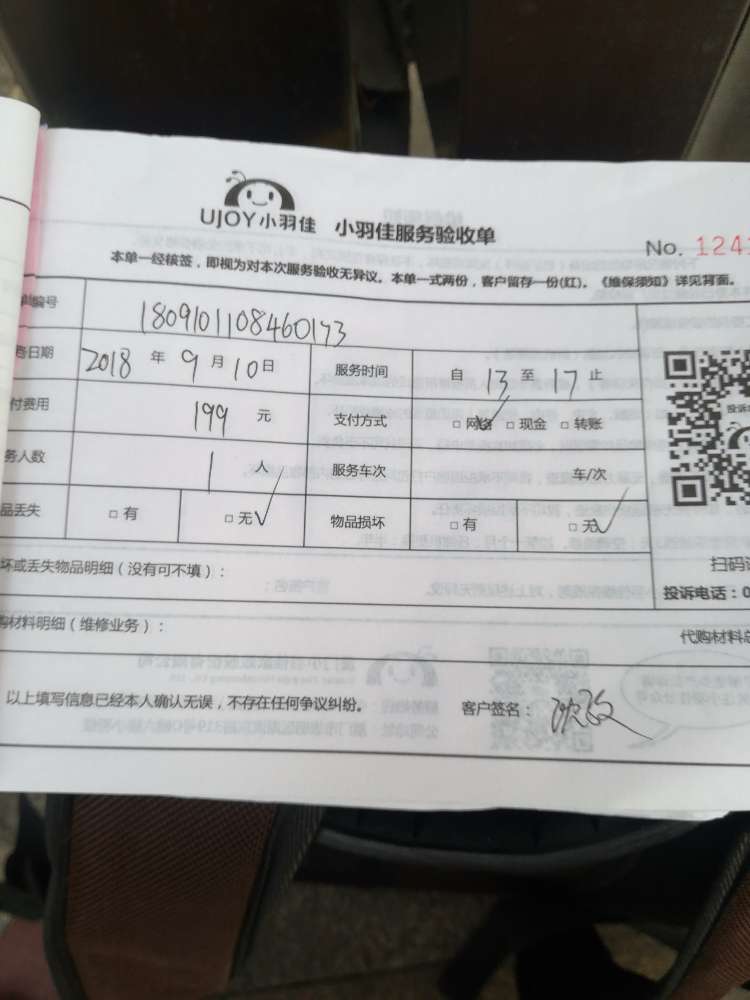 UJOY小羽佳 小羽佳服务验收单
No. 1241
本单一经核签，即视为对本次服务验收无异议。本单一式两份，客户留存一份(红)。《维保须知》详见背面。
单编号 1809101108460173
日期 2018 年 9 月 10 日 服务时间 自 13 至 17 止
付费用 199 元 支付方式 □ 网络 □ 现金 □ 转账
务人数 1 人 服务车次 车/次
品丢失 □ 有 □ 无√ 物品损坏 □ 有 □ 无√
坏或丢失物品明细（没有可不填）：
扫码
投诉电话：0
购材料明细（维修业务）：
代购材料总
以上填写信息已经本人确认无误，不存在任何争议纠纷。 客户签名：